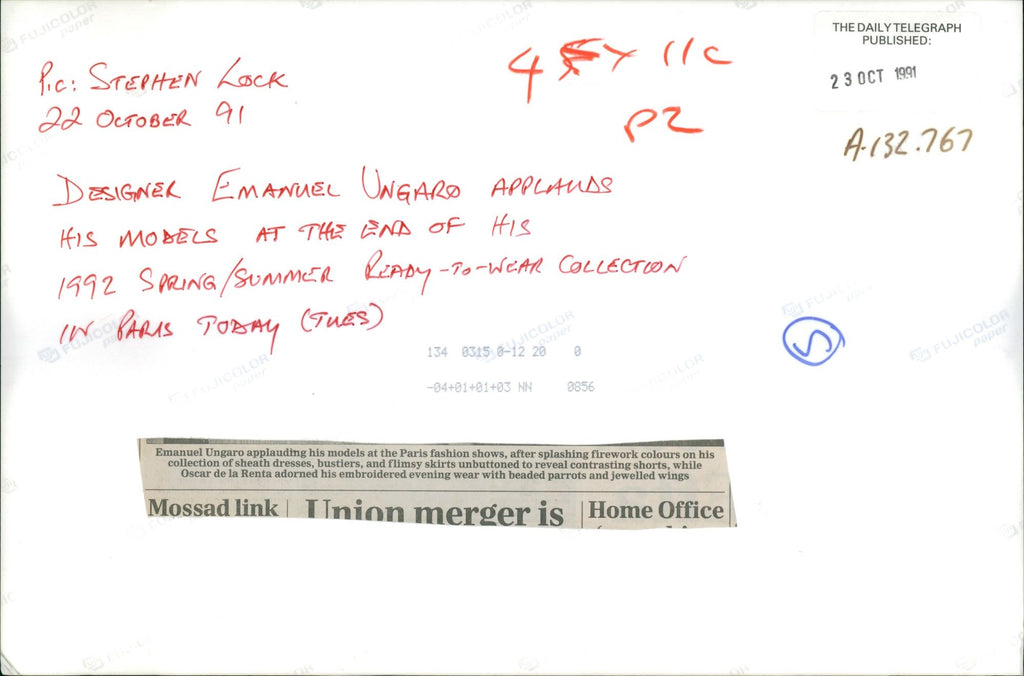 THE DAILY TELEGRAPH
PUBLISHED:
23 OCT 1991
P.C: STEPHEN LOCK
22 OCTOBER 91
11C
P2
A.132.767
DESIGNER EMANUEL UNGARO APPLAUDS
HIS MODELS AT THE END OF HIS
1992 SPRING/SUMMER READY-TO-WEAR COLLECTION
IN PARIS TODAY (TUES)
S
134 0315 0-12 20 0
-04+01+01+03 NN 0856
Emanuel Ungaro applauding his models at the Paris fashion shows, after splashing firework colours on his
collection of sheath dresses, bustiers, and flimsy skirts unbuttoned to reveal contrasting shorts, while
Oscar de la Renta adorned his embroidered evening wear with beaded parrots and jewelled wings
Mossad link
Union merger is
Home Office
FUJICOLOR
paper